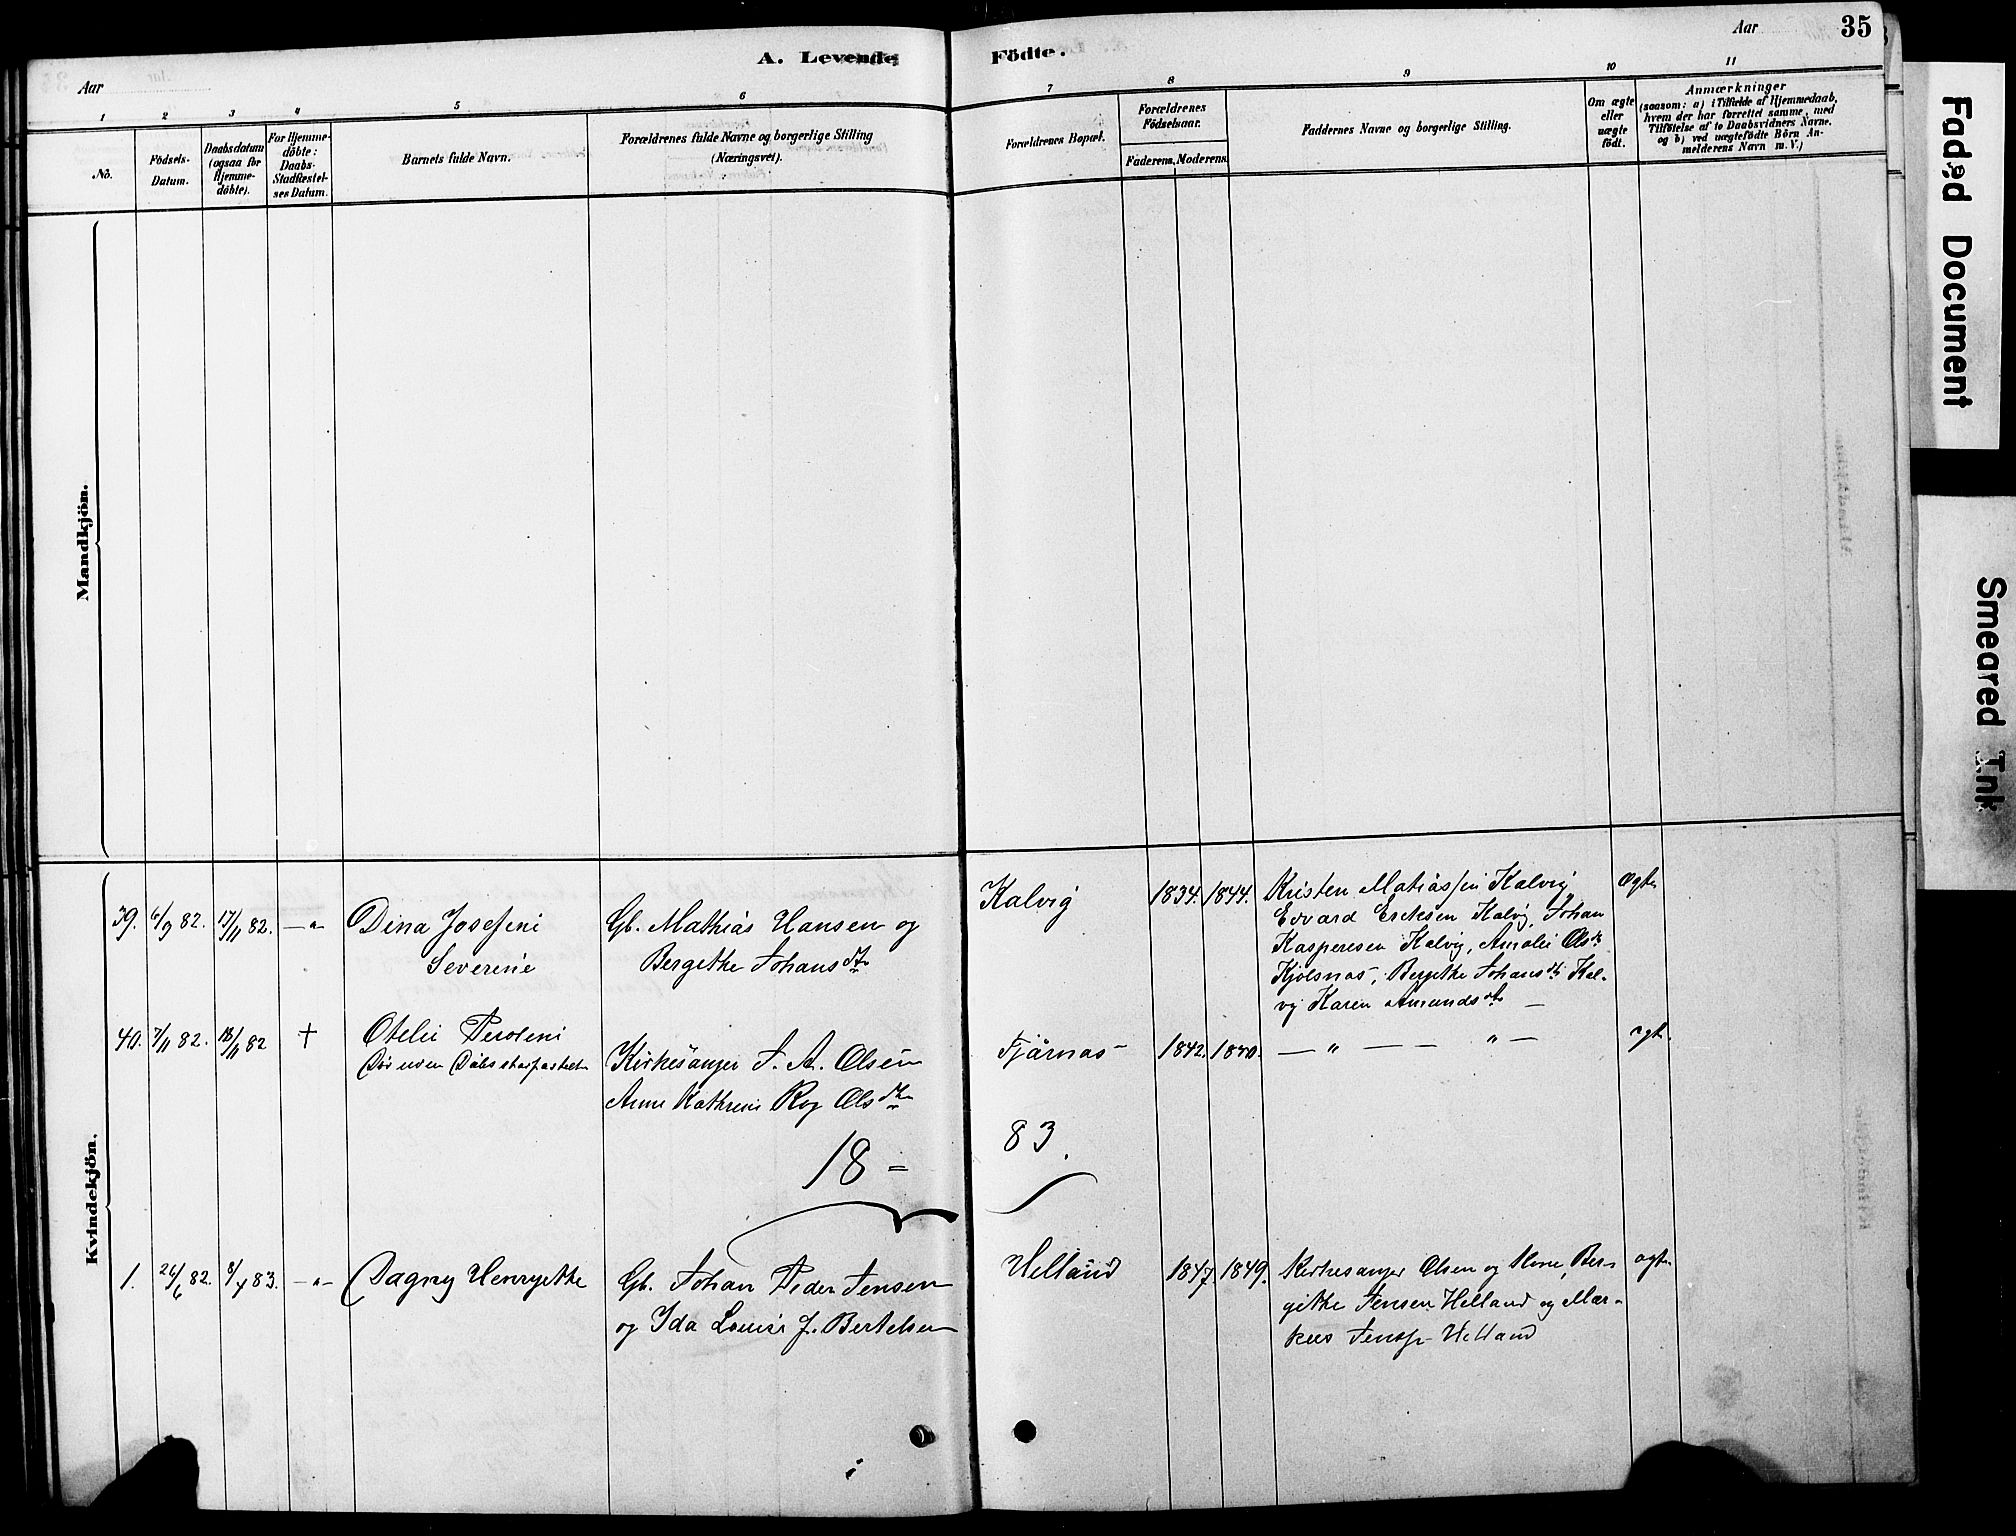 Aar
A. Levende Födte.
Aar
35
1 2 3 4 5 6 7 8 9 10 11
No.
Födsels-
Datum.
Daabsdatum
(ogsaa for
Hjemme-
döbte).
For Hjemme-
döbte:
Daabs-
Stadfæstel-
ses Datum.
Barnets fulde Navn.
Forældrenes fulde Navne og borgerlige Stilling
(Næringsvei).
Forældrenes Bopæl.
Forældrenes
Födselsaar.
Faderens. Moderens.
Faddernes Navne og borgerlige Stilling.
Om ægte
eller
uægte
født.
Anmærkninger
(saasom: a) i Tilfælde af Hjemmedaab,
hvem der har forrettet samme, med
Tilföielse af to Daabsvidners Navne.
og b) ved uægtefödte Börn An-
melderens Navn m. V.)
Mandkjön.
Kvindekjön.
39. 6/9 82. 17/11 82. — " —
Dina Josefine
Severine
Gb. Mathias Hansen og
Bergethe Johansdtr
Kalvig
1834. 1844.
Kristen Matiassen Kalvig
Edvard Eriksen Kalvig, Johan
Kaspersen Kalvig, Amalie Olsdtr
Kjölsnas, Bergethe Johansdtr Kal-
vig Karen Amundsdtr —
Ægte
40. 7/11 82. 18/11 82 +
Otelie Peroline
Kirkesanger J. A. Olsen
Anne Kathrine Roy Olsdtr
Fjärnas
1842.
— " — — " —
ægt.
18 = 83.
1. 26/6 82. 8/4 83. — " —
Dagny Henryethe
Gb. Johan Peder Jensen
og Ida Louise J. Bertelsen
Helland
1847. 1849.
Kirkesanger Olsen og Kone, Ber-
githe Jensen Helland og Mar-
kus Jenss. Helland
ægte
Faded Document
Smeared Ink